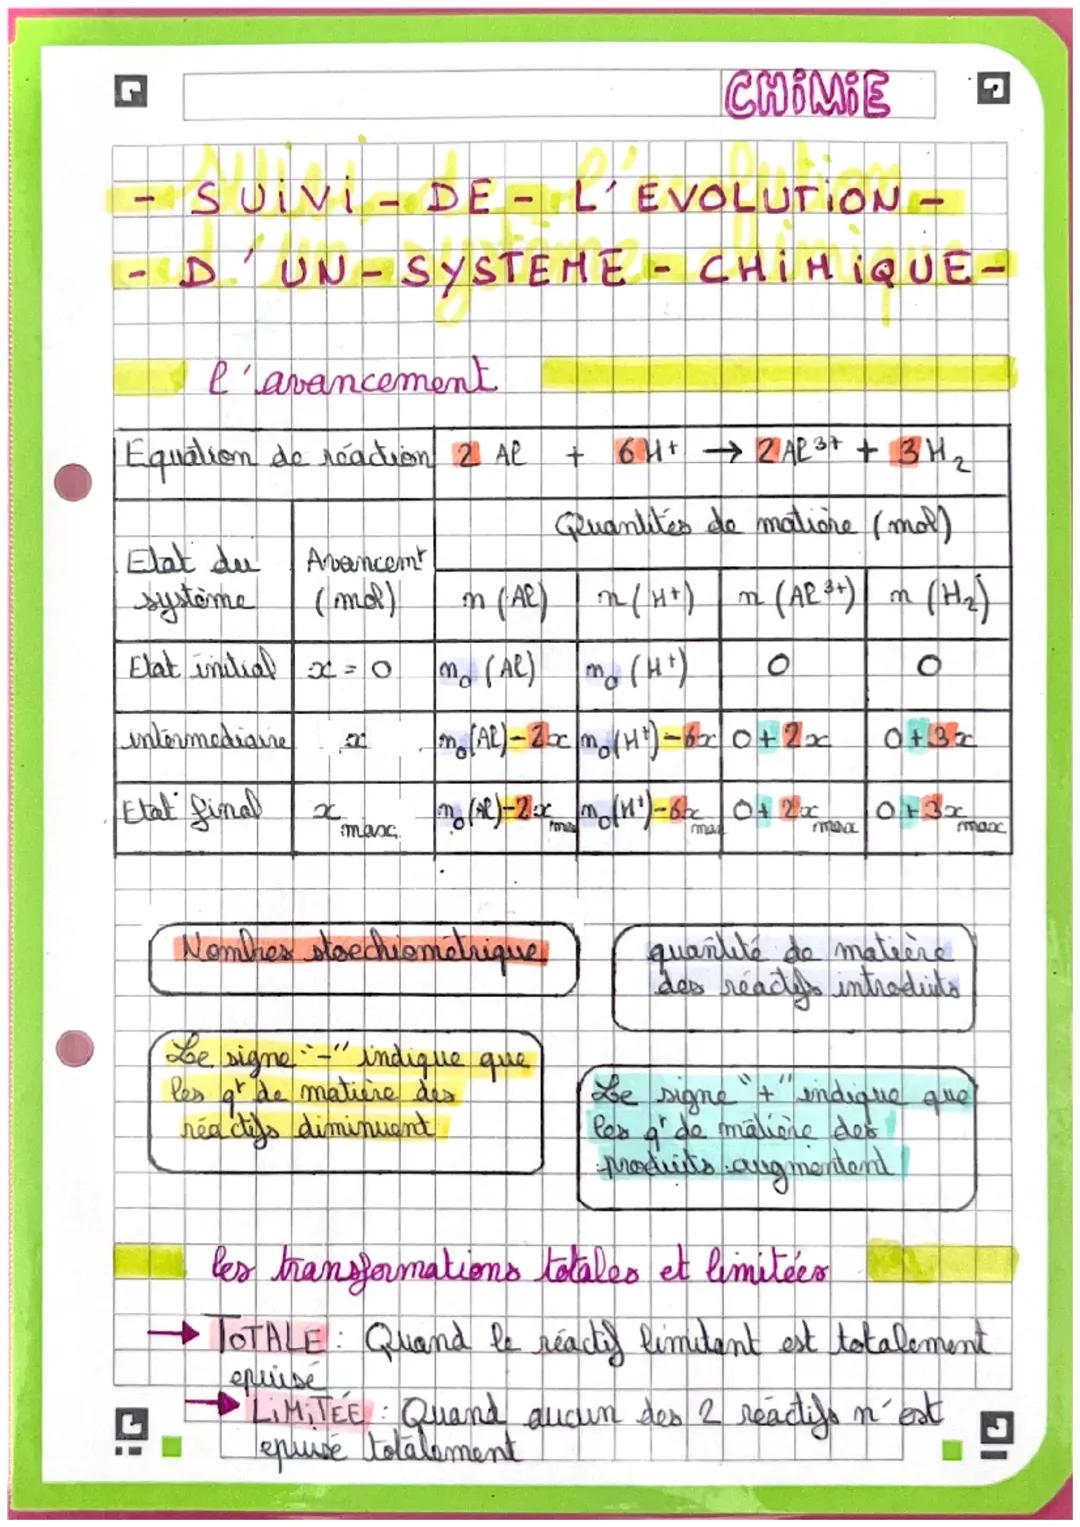 CHIMIE
- SUIVI - DE - L'EVOLUTION -
- D'UN - SYSTEME - CHIMIQUE -
l'avancement
Equation de réaction 2 Al + 6H+ → 2Al3+ + 3H2
Quantités de matière (mol)
Etat du système
Avancemt (mol)
n (Al) n (H+) n (Al3+) n (H2)
Etat initial x = 0 n0 (Al) n0 (H+) 0 0
intermediaire x n0(Al)-2x n0(H+)-6x 0+2x 0+3x
Etat final xmax n0(Al)-2xmax n0(H+)-6xmax 0+2xmax 0+3xmax
Nombres stoechiométrique
quantité de matière
des réactifs introduits
Le signe "-" indique que
les qt de matière des
réactifs diminuent
Le signe "+" indique que
les qt de matière des
produits augmentent
les transformations totales et limitées
→ TOTALE : Quand le réactif limitant est totalement
epuisé
→ LIMITÉE : Quand aucun des 2 réactifs n'est
epuisé totalement